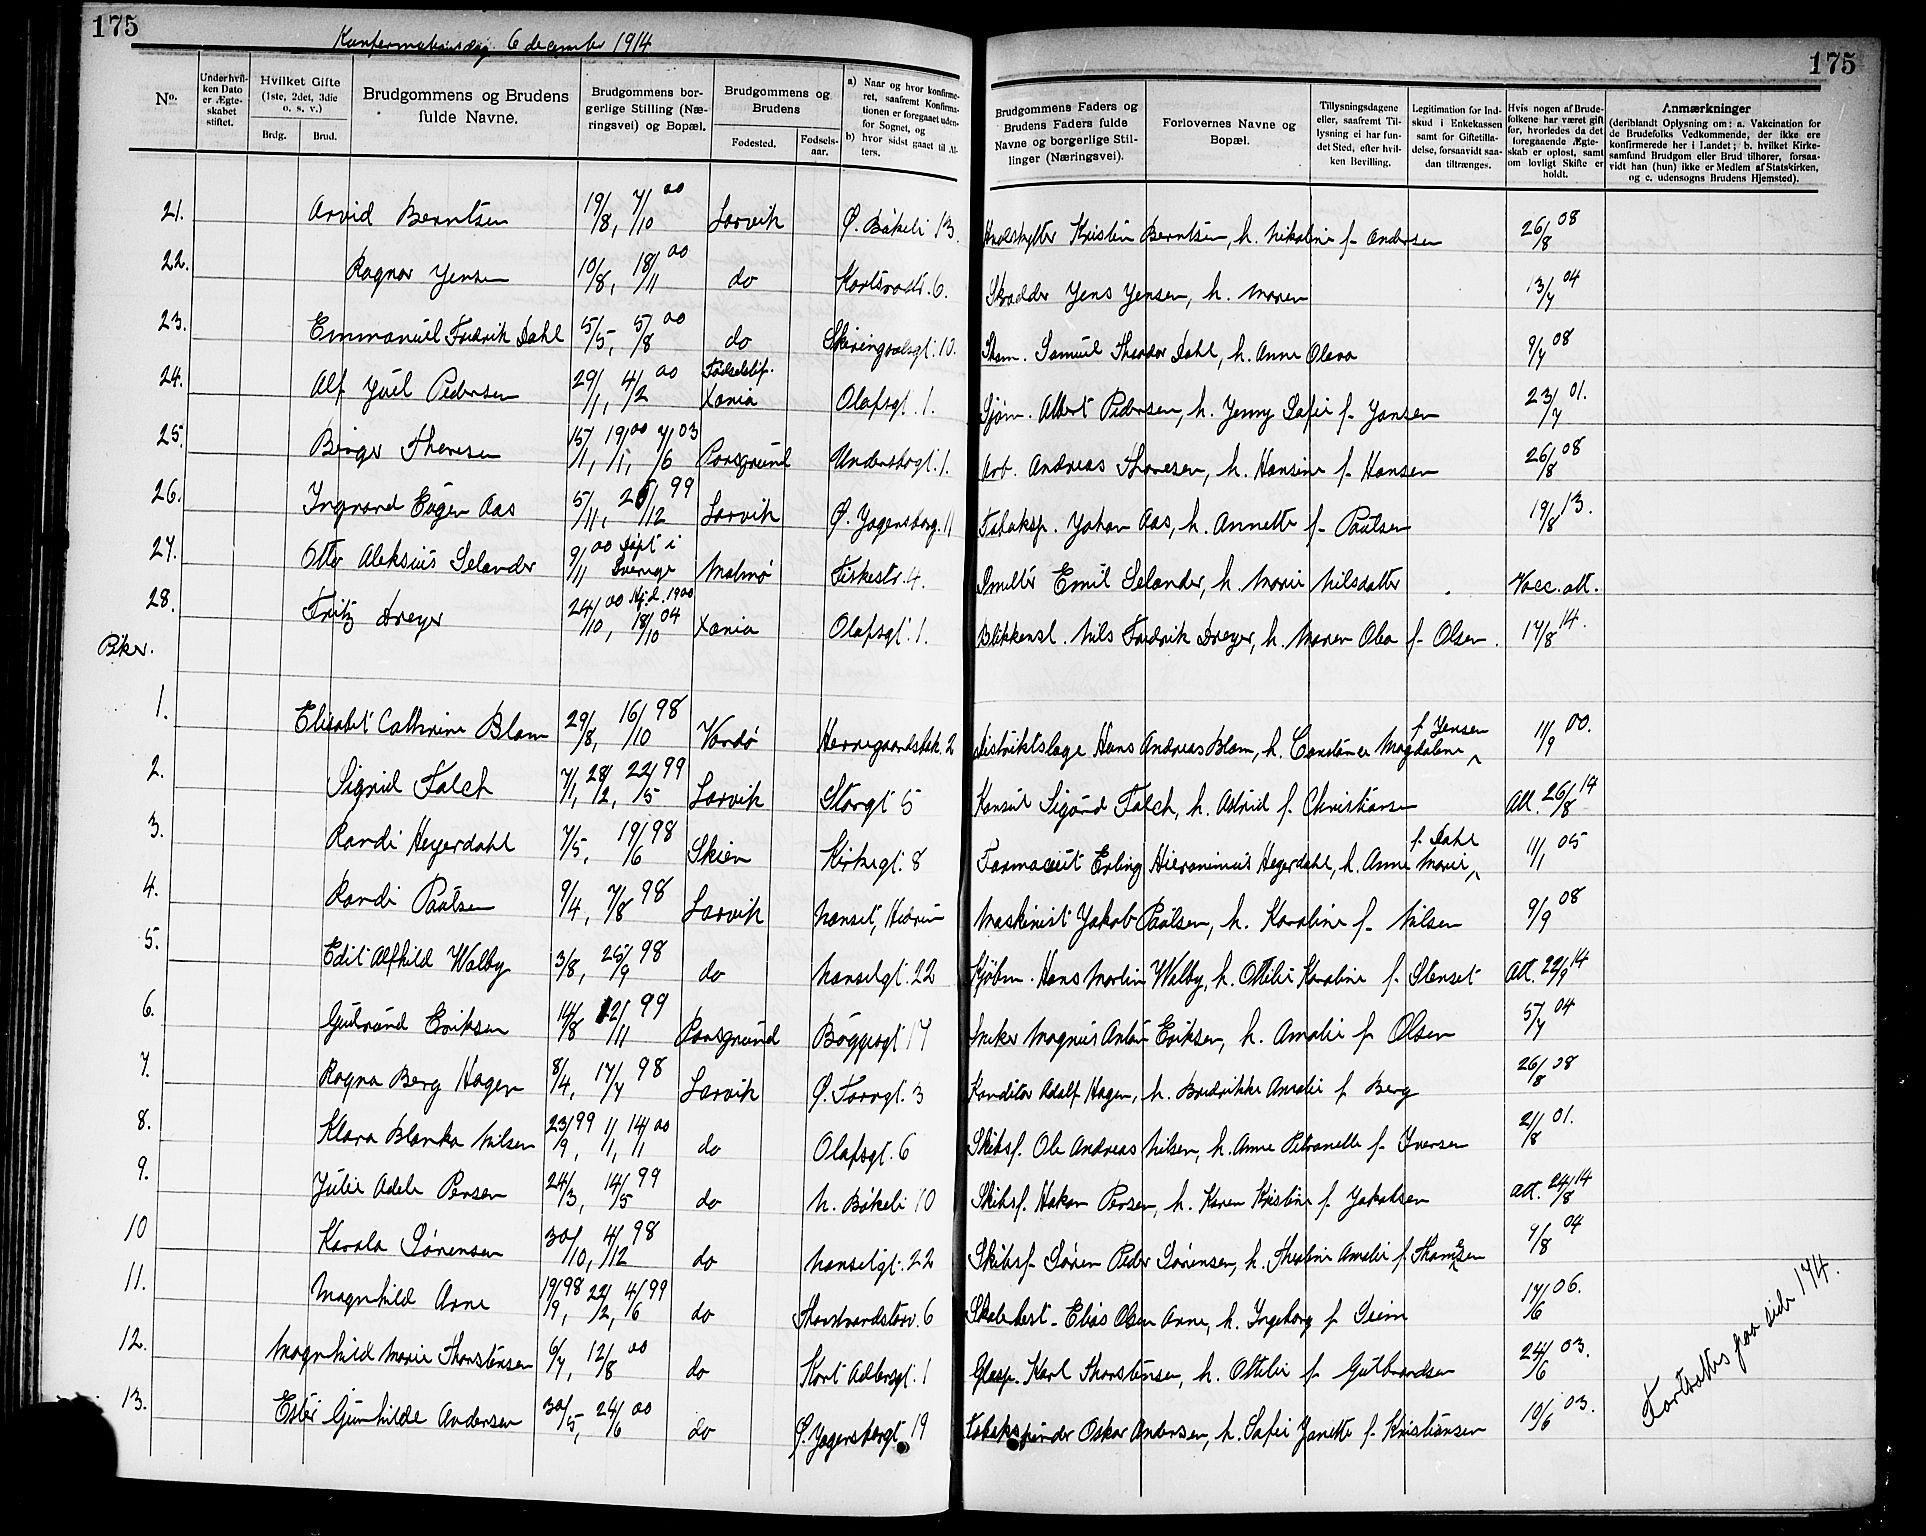 175
Konfirmationsdag 6 december 1914
175
No.
Under hvilken Dato er Ægteskabet stiftet.
Hvilket Gifte (1ste, 2det, 3die o. s. v.)
Brdg. Brud.
Brudgommens og Brudens fulde Navne.
Brudgommens borgerlige Stilling (Næringsvei) og Bopæl.
Brudgommens og Brudens
Fødested. Fødselsaar.
a) Naar og hvor konfirmeret, saafremt Konfirmationen er foregaaet udenfor Sognet, og
b) hvor sidst gaaet til Alters.
Brudgommens Faders og Brudens Faders fulde Navne og borgerlige Stillinger (Næringsvei).
Forlovernes Navne og Bopæl.
Tillysningsdagene eller, saafremt Tillysning ei har fundet Sted, efter hvilken Bevilling.
Legitimation for Indskud i Enkekassen samt for Giftetilladelse, forsaavidt saadan tiltrænges.
Hvis nogen af Brudefolkene har været gift før, hvorledes da det foregaaende Ægteskab er opløst, samt om lovligt Skifte er holdt.
Anmærkninger
(deriblandt Oplysning om: a. Vakcination for de Brudefolks Vedkommende, der ikke ere konfirmerede her i Landet; b. hvilket Kirkesamfund Brudgom eller Brud tilhører, forsaavidt han (hun) ikke er Medlem af Statskirken, og c. udensogns Brudens Hjemsted).
21. Arvid Berntsen 19/8, 7/10 00 Larvik Ø. Bökeli 13. Kristian Berntsen, h. Nikoline f. Andersen 26/8 08
22. Ragnar Jensen 10/8, 18/11 00 do 6. Skrædder Jens Jensen, h. Maren 13/7 04
23. Emmanuel Fredrik Dahl 5/5, 5/8 00 do Skiringsalsgt. 10. Samuel Theodor Dahl, h. Anne Olava 9/7 08
24. Alf Juel Pedersen 29/1, 4/2 00 Xania Olafsgt. 1. Sjøm. Albert Pedersen, h. Jenny Sofie f. Jansen 23/7 01.
25. Birger Thoresen 15/1, 19/1, 00 7/6 03 Porsgrund 1. Arb. Andreas Thoresen, h. Hansine f. Hansen 26/8 08
26. Ingvard Eugen Aas 5/11, 26/12 99 Larvik Ø. Jegersborg. 11 Johan Aas, h. Annette f. Paulsen 19/8 13.
27. Otto Aleksius Selander 9/11 00 døpt i Sverige Malmø Fiskestr. 4. Emil Selander, h. Marie Nilsdatter Vacc. att.
28. Fritz Dreyer 24/10 00 Hj.d. 1900 18/10 04 Xania Olafsgt. 1. Blikkensl. Nils Fredrik Dreyer, h. Maren Olea f. Olsen. 17/8 14.
Piker.
1. Elisabet Cathrine Blom 29/8, 16/10 98 Vardø Herregaardsbak. 2 Distriktslæge Hans Andreas Blom, h. Constance Magdalene f. Jensen 11/9 00.
2. Sigrid Falch 7/1, 28/2, 22/5 99 Larvik Storgt 5 Konsul Sigurd Falch, h. Astrid f. Christiansen Att. 26/8 14
3. Randi Heyerdahl 7/5, 19/6 98 Skien Kirkegt. 8 Farmaceut Erling Hieronimus Heyerdahl, h. Anne Marie f. Dahl 11/1 05
4. Randi Paulsen 9/4, 7/8 98 Larvik Nanset, Hedrum Maskinist Jakob Paulsen, h. Karoline f. Nilsen 9/9 08
5. Edit Alfhild Walby 3/8, 25/9 98 do Nansetgt. 22 Kjøbm. Hans Martin Walby, h. Ottilie Karoline f. Stenset Att. 22/9 14
6. Gudrund Eriksen 14/8 12/11 99 Porsgrund Bøggesgt 17 Snekker Magnus Anton Eriksen, h. Amalie f. Olsen 5/7 04
7. Ragna Berg Hagen 8/4, 17/7 98 Larvik Ø. Torvgt. 3 Konditor Adolf Hagen, h. Amalie f. Berg 26/8 08
8. Klara Blanka Nilsen 23/9 99, 1/1, 14/1 00 do Olafsgt. 6 Skibsf. Ole Andreas Nilsen, h. Anne Petronelle f. Iversen 21/8 01.
9. Julie Adele Persen 24/3, 14/5 99 do N. Bökeli 10 Skibsf. Hakon Persen, h. Karen Kristine f. Jakobsen Att. 24/8 14
10 Karola Sørensen 30/10, 4/12 98 do Nansetgt. 22 Skibsf. Søren Peder Sørensen, h. Theoline Amalie f. Thomesen 9/8 04
11. Magnhild Arne 19/9 98, 22/2, 4/6 99 do 6 Skolebest. Elias Olsen Arne, h. Ingeborg f. Seim 17/6 06.
12. Magnhild Marie Thorstensen 6/7, 12/8 00 do Kort Adlersgt. 1 Glasp. Karl Thorstensen, h. Ottilie f. Gulbrandsen 24/6 03.
13. Ester Gunhilde Andersen 30/5, 24/6 00 do Ø. Jegersborgt. 19 Tobakspinder Oskar Andersen, h. Sofie Janette f. Kristiansen 10/6 03.
Fortsættes paa side 174.